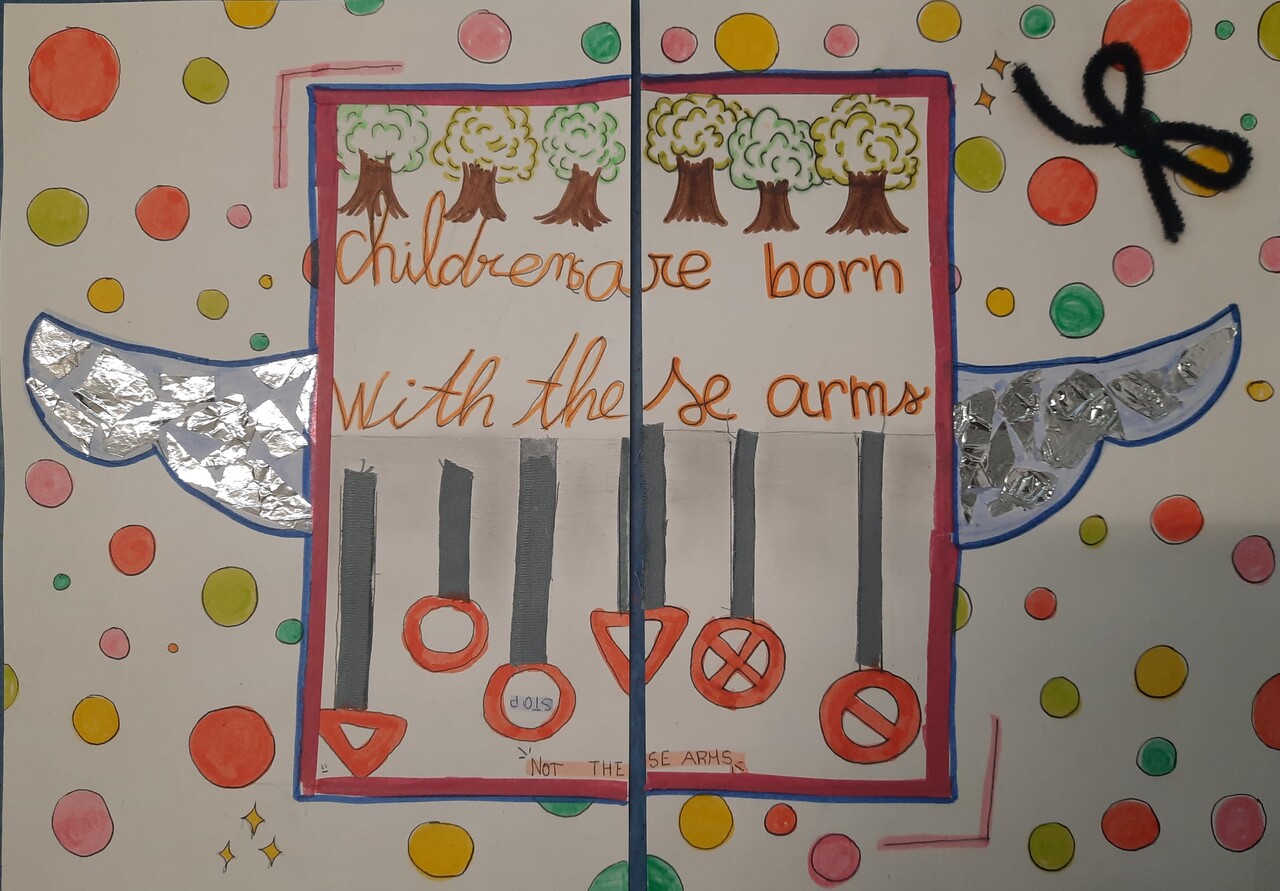 childrens are born
with these arms
STOP
NOT THESE ARMS